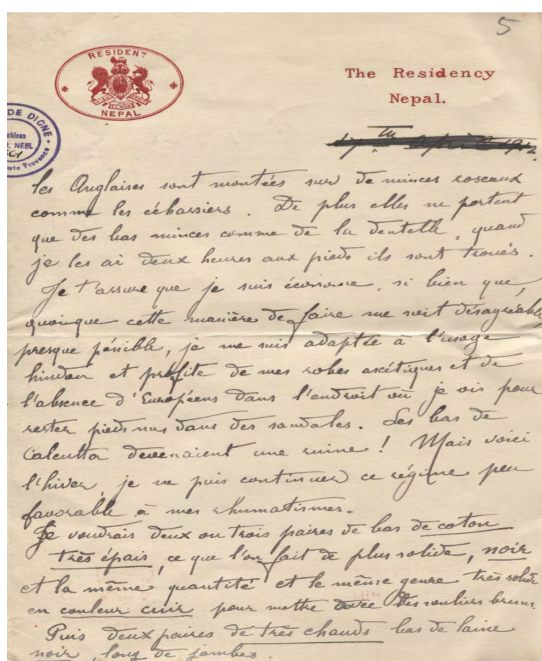 5
RESIDENT
NEPAL
The Residency
Nepal.
17th April 1912.
DE DIGNE
Archives
. NEEL
les Anglaises sont montées sur de minces roseaux
comme les échassiers. De plus elles ne portent
que des bas minces comme de la dentelle, quand
je les ai deux heures aux pieds ils sont troués.
Je t'assure que je suis économe, si bien que,
quoique cette manière de faire me soit désagréable,
presque pénible, je me suis adaptée à l'usage
hindou et profite de mes robes ascétiques et de
l'absence d'Européens dans l'endroit où je vis pour
rester pieds nus dans des sandales. Les bas de
Calcutta devenaient une ruine ! Mais voici
l'hiver, je ne puis continuer ce régime peu
favorable à mes rhumatismes.
Je voudrais deux ou trois paires de bas de coton
très épais, ce que l'on fait de plus solide, noir
et la même quantité et le même genre très solide
en couleur cuir pour mettre avec des souliers bruns
Puis deux paires de très chauds bas de laine
noir, long de jambes.